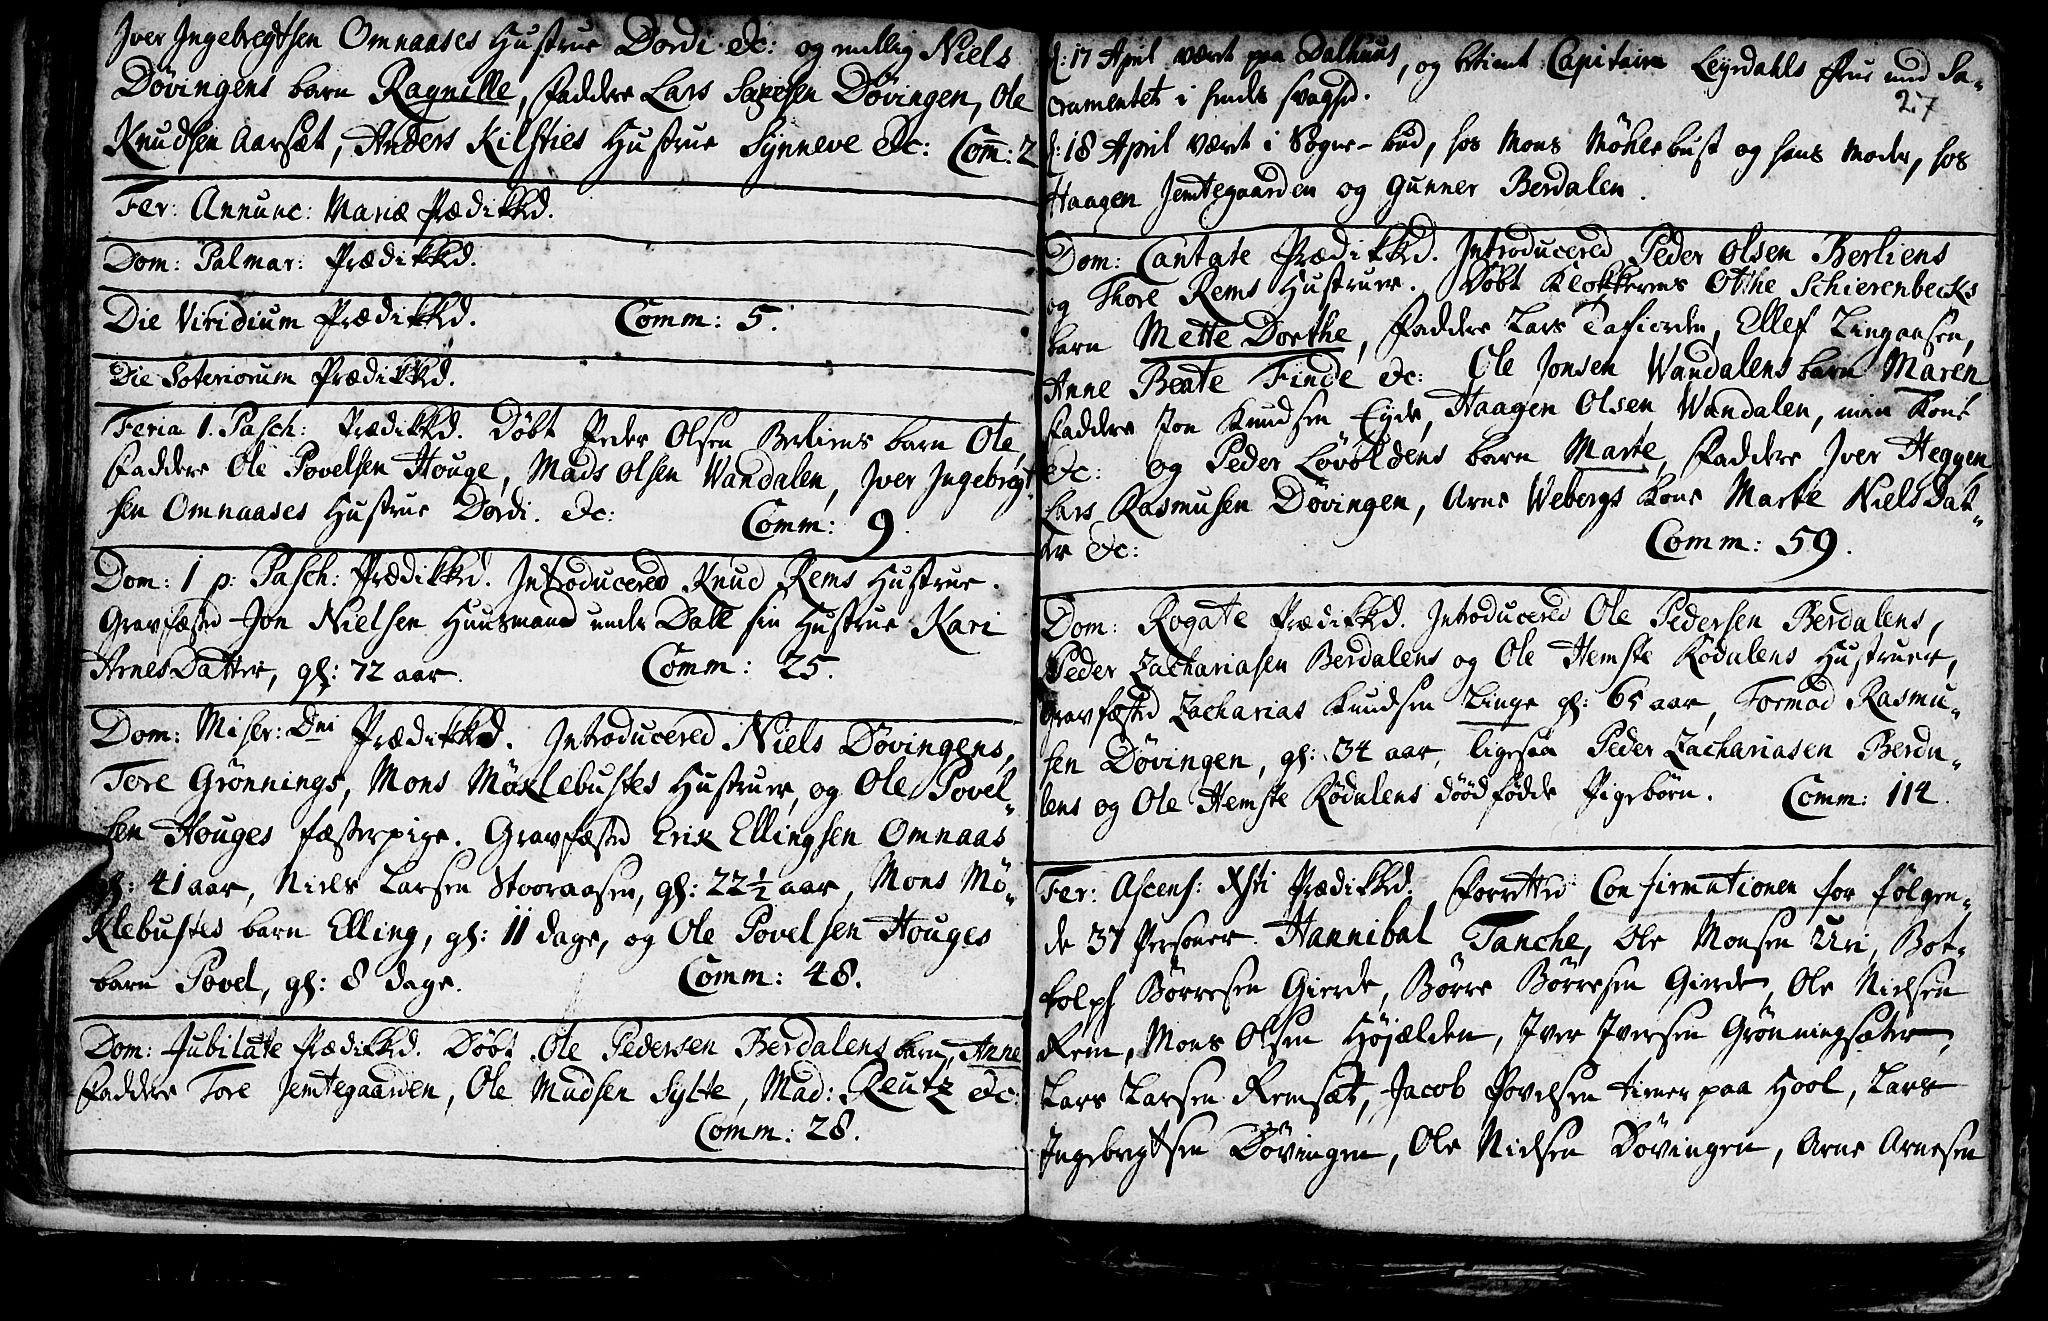 Iver Ingebregtsen Omnaases Hustrue Dordi &c: og endlig Niels
Døvingens barn Ragnille, Faddere Lars Døvingen, Ole
Knudsen Aarset, Anders Kilsties Hustrue Synneve &c: Com̄: 2
Fer: Annunc: Mariæ Prædikked.
Dom: Palmar: Prædikked.
Die Viridium Prædikked. Comm: 5.
Die Soteriorum Prædikked.
Feria 1. Pasch: Prædikked. Døbt Peder Olsen Berliens barn Ole,
Faddere Ole Povelsen Houge, Mads Olsen Wandalen, Iver Ingebregt-
sen Omnaases Hustrue Dordi. &c: Comm: 9.
Dom: 1 p: Pasch: Prædikked. Introducered Knud Rems Hustrue.
Gravfæsted Jon Nielsen Huusmand under Dall sin Hustrue Kari
ArnesDatter, gl: 72 aar. Comm: 25.
Dom: Miser: Dni Prædikked. Introducered Niels Døvingens,
Tore Grønnings, Mons Møklebustes Hustruer, og Ole Povel-
sen Houges fæstepige. Gravfæsted Erik Ellingsen Omnaas
gl: 41 aar, Niels Larsen Stooraasen, gl: 22½ aar, Mons Mø-
klebustes barn Elling, gl: 11 dage, og Ole Povelsen Houges
barn Povel, gl: 8 dage. Comm: 48.
Dom: Jubilate Prædikked. Døbt Ole Pedersen Berdalens barn Anne
Faddere Tore Jemtegaarden, Ole Madsen Sylte, Mad: Reutz &c:
Comm: 28.
d: 17 April været paa Dalhuus, og betient Capitain Leyrdahls Frue med Sa-
cramentet i hendes svaghed.
27
d: 18 April været i Sogne-bud, hos Mons Møklebust og hans Moder, hos
Haagen Jemtegaarden og Gunner Berdalen.
Dom: Cantate Prædikked. Introducered Peder Olsen Berliens
og Thore Rems Hustruer. Døbt Klokkerens Othe Schierenbecks
barn Mette Dorthe, Faddere Lars Tafiorden, Ellef Lingaasen,
Anne Beate Finde &c: Ole Jonsen Wandalens barn Maren
Faddere Jon Knudsen Eyde, Haagen Olsen Wandalen, min Kone
&c: og Peder Løvoldens barn Marte, Faddere Iver Heggen
Lars Rasmusen Døvingen, Arne Webergs Kone Marte NielsDat-
ter &c: Comm: 59.
Dom: Rogate Prædikked. Introducered Ole Pedersen Berdalens,
Peder Zachariasen Berdalens og Ole Hemste Rødalens Hustruer,
Gravfæsted Zacharias Knudsen Linge gl: 65 aar, Tormod Rasmu-
sen Døvingen, gl: 34 aar, ligesaa Peder Zachariasen Berda-
lens og Ole Hemste Rødalens dødfødde Pigebørn. Comm: 114.
Fer: Ascens: Xsti Prædikked. Forrettet Confirmationen for følgen-
de 37 Personer. Hannibal Tanche, Ole Monsen Uri, Bot-
tolph Børresen Gierde, Børre Børresen Gierde, Ole Nielsen
Rem, Mons Olsen Højælden, Iver Iversen Grønningsæter,
Lars Larsen Remsæt, Jacob Povelsen tiener paa Hool, Lars
Ingebregtsen Døvingen, Ole Nielsen Døvingen, Arne Arnesen